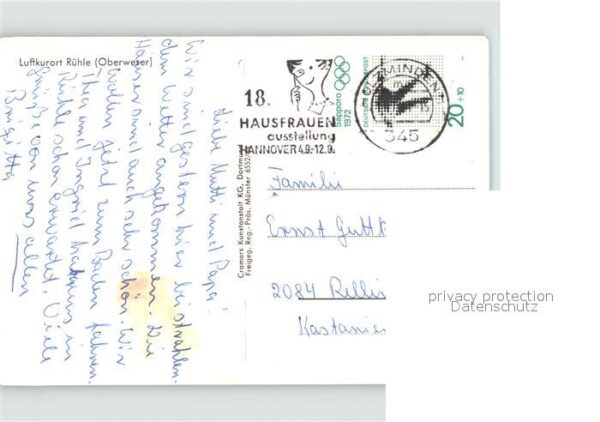 Luftkurort Rühle (Oberweser)
Liebe Mutti und Papa!
Wir sind gestern hier bei strahlen-
dem Wetter angekommen. Die
Häuser sind auch sehr schön. Wir
wollen jetzt zum Baden fahren.
Thea und Ingrid hatten uns in
Rühle schon erwartet. Viele
Grüße von uns allen
Birgitta
Cramers Kunstanstalt KG, Dortmund
Freigeg. Reg.-Präs. Münster 6552/
18.
HAUSFRAUEN
ausstellung
HANNOVER 4.9.-12.9.
Sapporo
1972
20+10
HOLZMINDEN
345
Familie
Ernst Gutt
2084 Rellis
Kastanie
privacy protection
Datenschutz